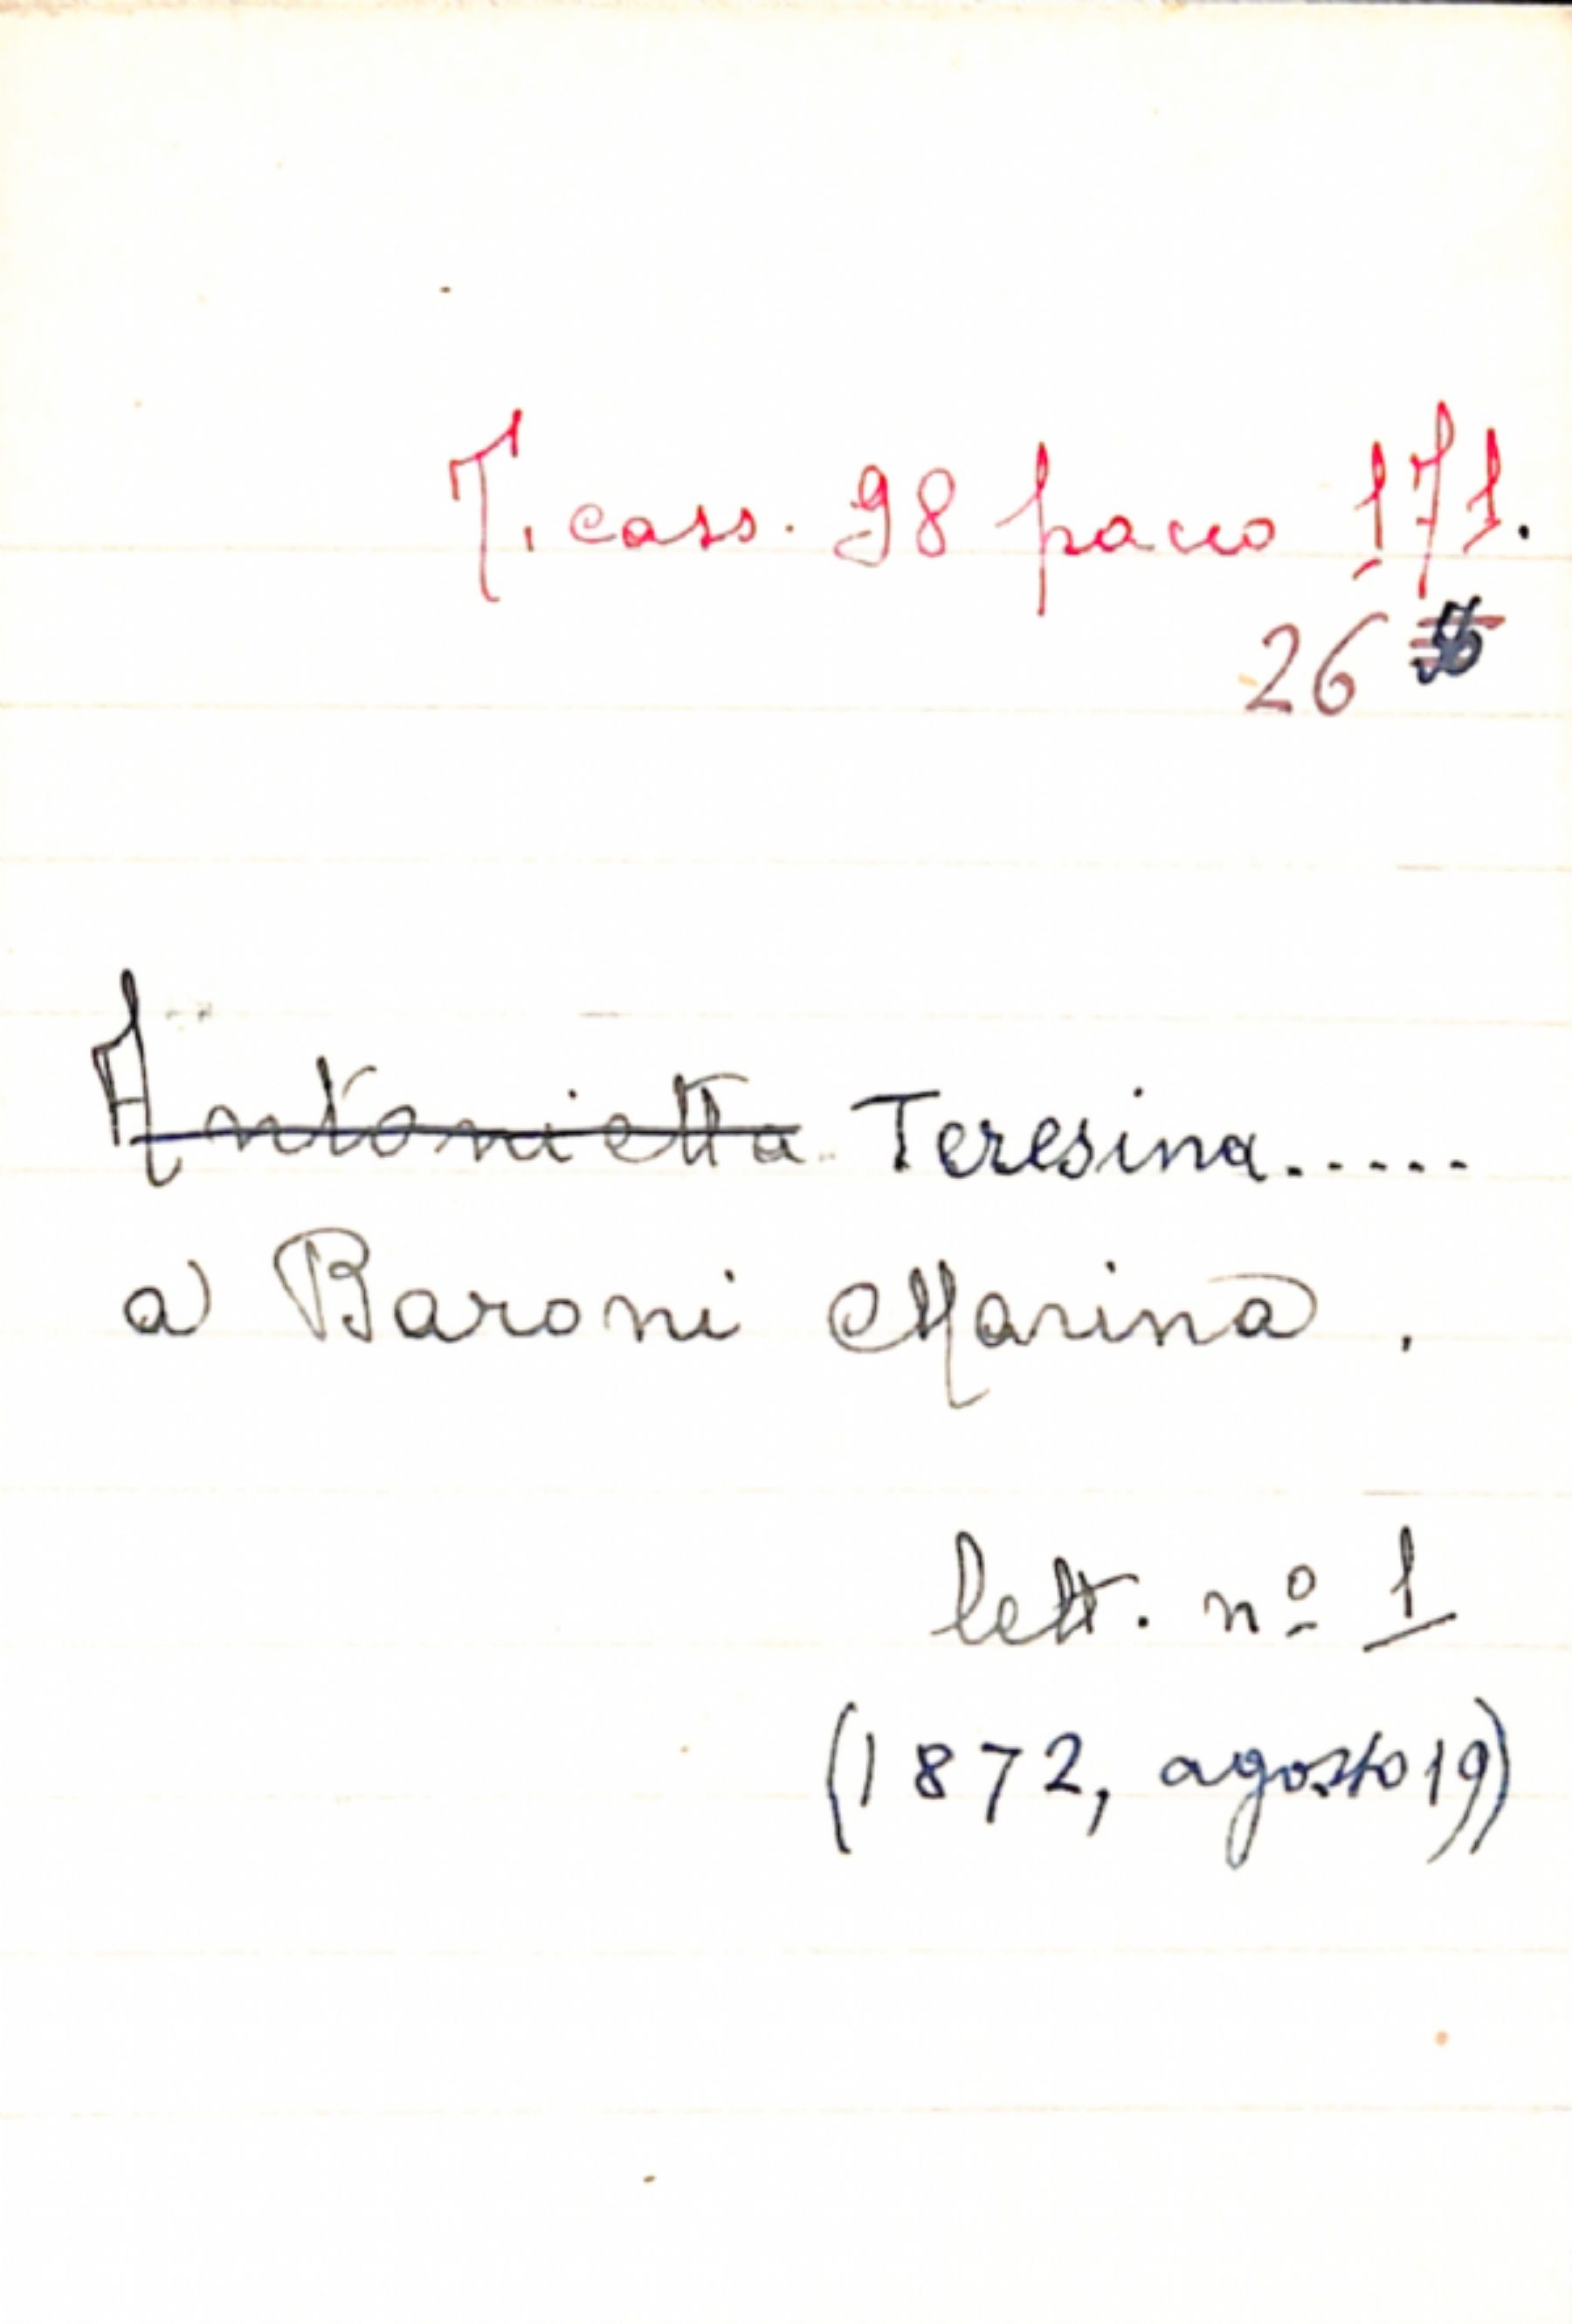 T. cass. 98 pacco 171.
26
Antonietta Teresina......
a Baroni Marina.
lett. nº 1
(1872, agosto 19)